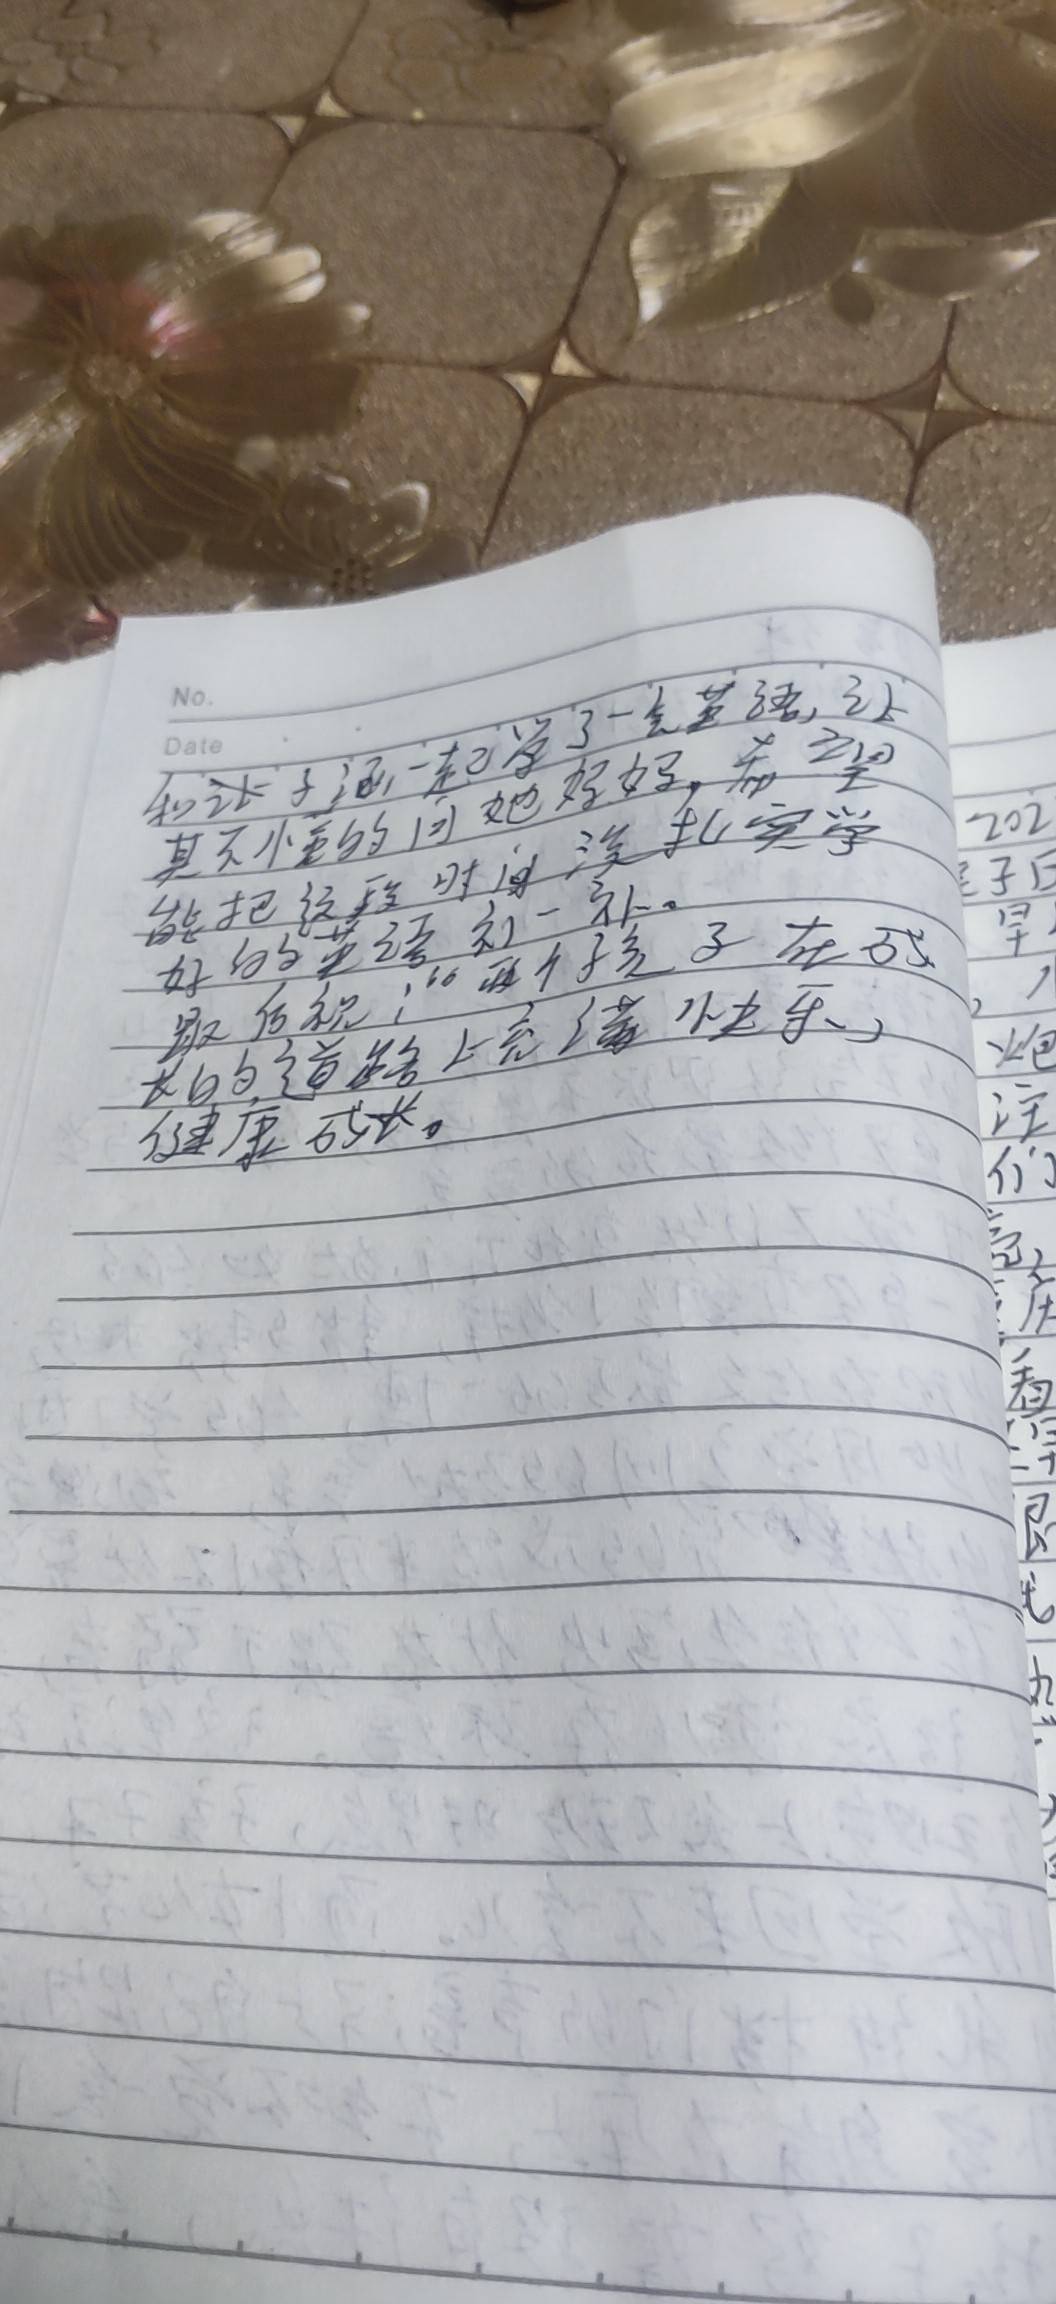 No.
Date
和许子涵一起学了一会英语,让
其不懂的问她好好。希望
能把这段时间没扎实学
好的英语补一补。
最后祝:“两个孩子在成
长的道路上充满快乐,
健康成长。
202
子
早
炮
注
们
看